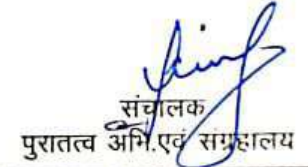 संचालक
पुरातत्व अभि.एवं संग्रहालय